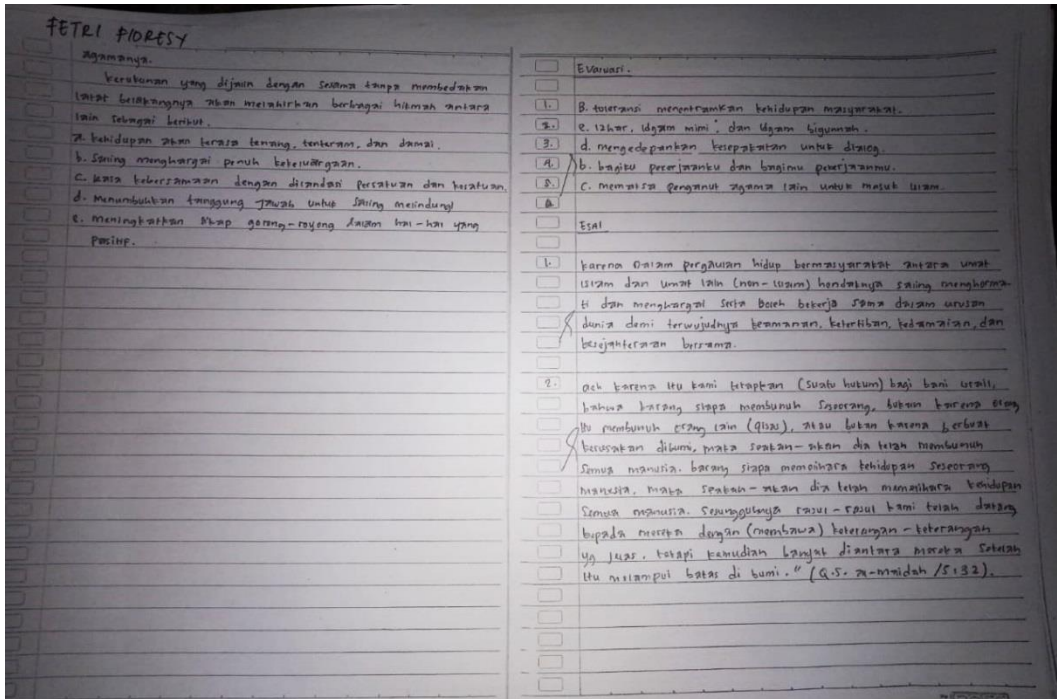 FETRI FIORESY
agamanya.
kerukunan yang dijalin dengan sesama tanpa membedakan
latar belakangnya akan melahirkan berbagai hikmah antara
lain sebagai berikut.
a. kehidupan akan terasa tenang, tenteram, dan damai.
b. Saling menghargai penuh kekeluargaan.
c. Rasa kebersamaan dengan dilandasi persatuan dan kesatuan.
d. Menumbuhkan tanggung jawab untuk saling melindungi
e. meningkatkan sikap gorong-royong dalam hal-hal yang
positif.
Evaluasi.
1. B. toleransi menentramkan kehidupan masyarakat.
2. e. izhar, idgam mimi, dan idgam bigunnah.
3. d. mengedepankan kesepakatan untuk dialog.
4. b. bagiku pekerjaanku dan bagimu pekerjaanmu.
5. c. memaksa penganut agama lain untuk masuk islam.
ESAI
1. karena Dalam pergaulan hidup bermasyarakat antara umat
islam dan umat lain (non-islam) hendaknya saling menghorma
ti dan menghargai serta boleh bekerja sama dalam urusan
dunia demi terwujudnya keamanan, ketertiban, kedamaian, dan
kesejahteraan bersama.
2. oleh karena itu kami tetapkan (suatu hukum) bagi bani israil,
bahwa barang siapa membunuh seseorang, bukan karena orang
itu membunuh orang lain (qisas), atau bukan karena berbuat
kerusakan dibumi, maka seakan-akan dia telah membunuh
semua manusia. barang siapa memelihara kehidupan seseorang
manusia, maka seakan-akan dia telah memelihara kehidupan
semua manusia. sesungguhnya rasul-rasul kami telah datang
kepada mereka dengan (membawa) keterangan-keterangan
yg jelas. tetapi kemudian banyak diantara mereka setelah
itu melampui batas di bumi." (Q.S. al-maidah /5:32).